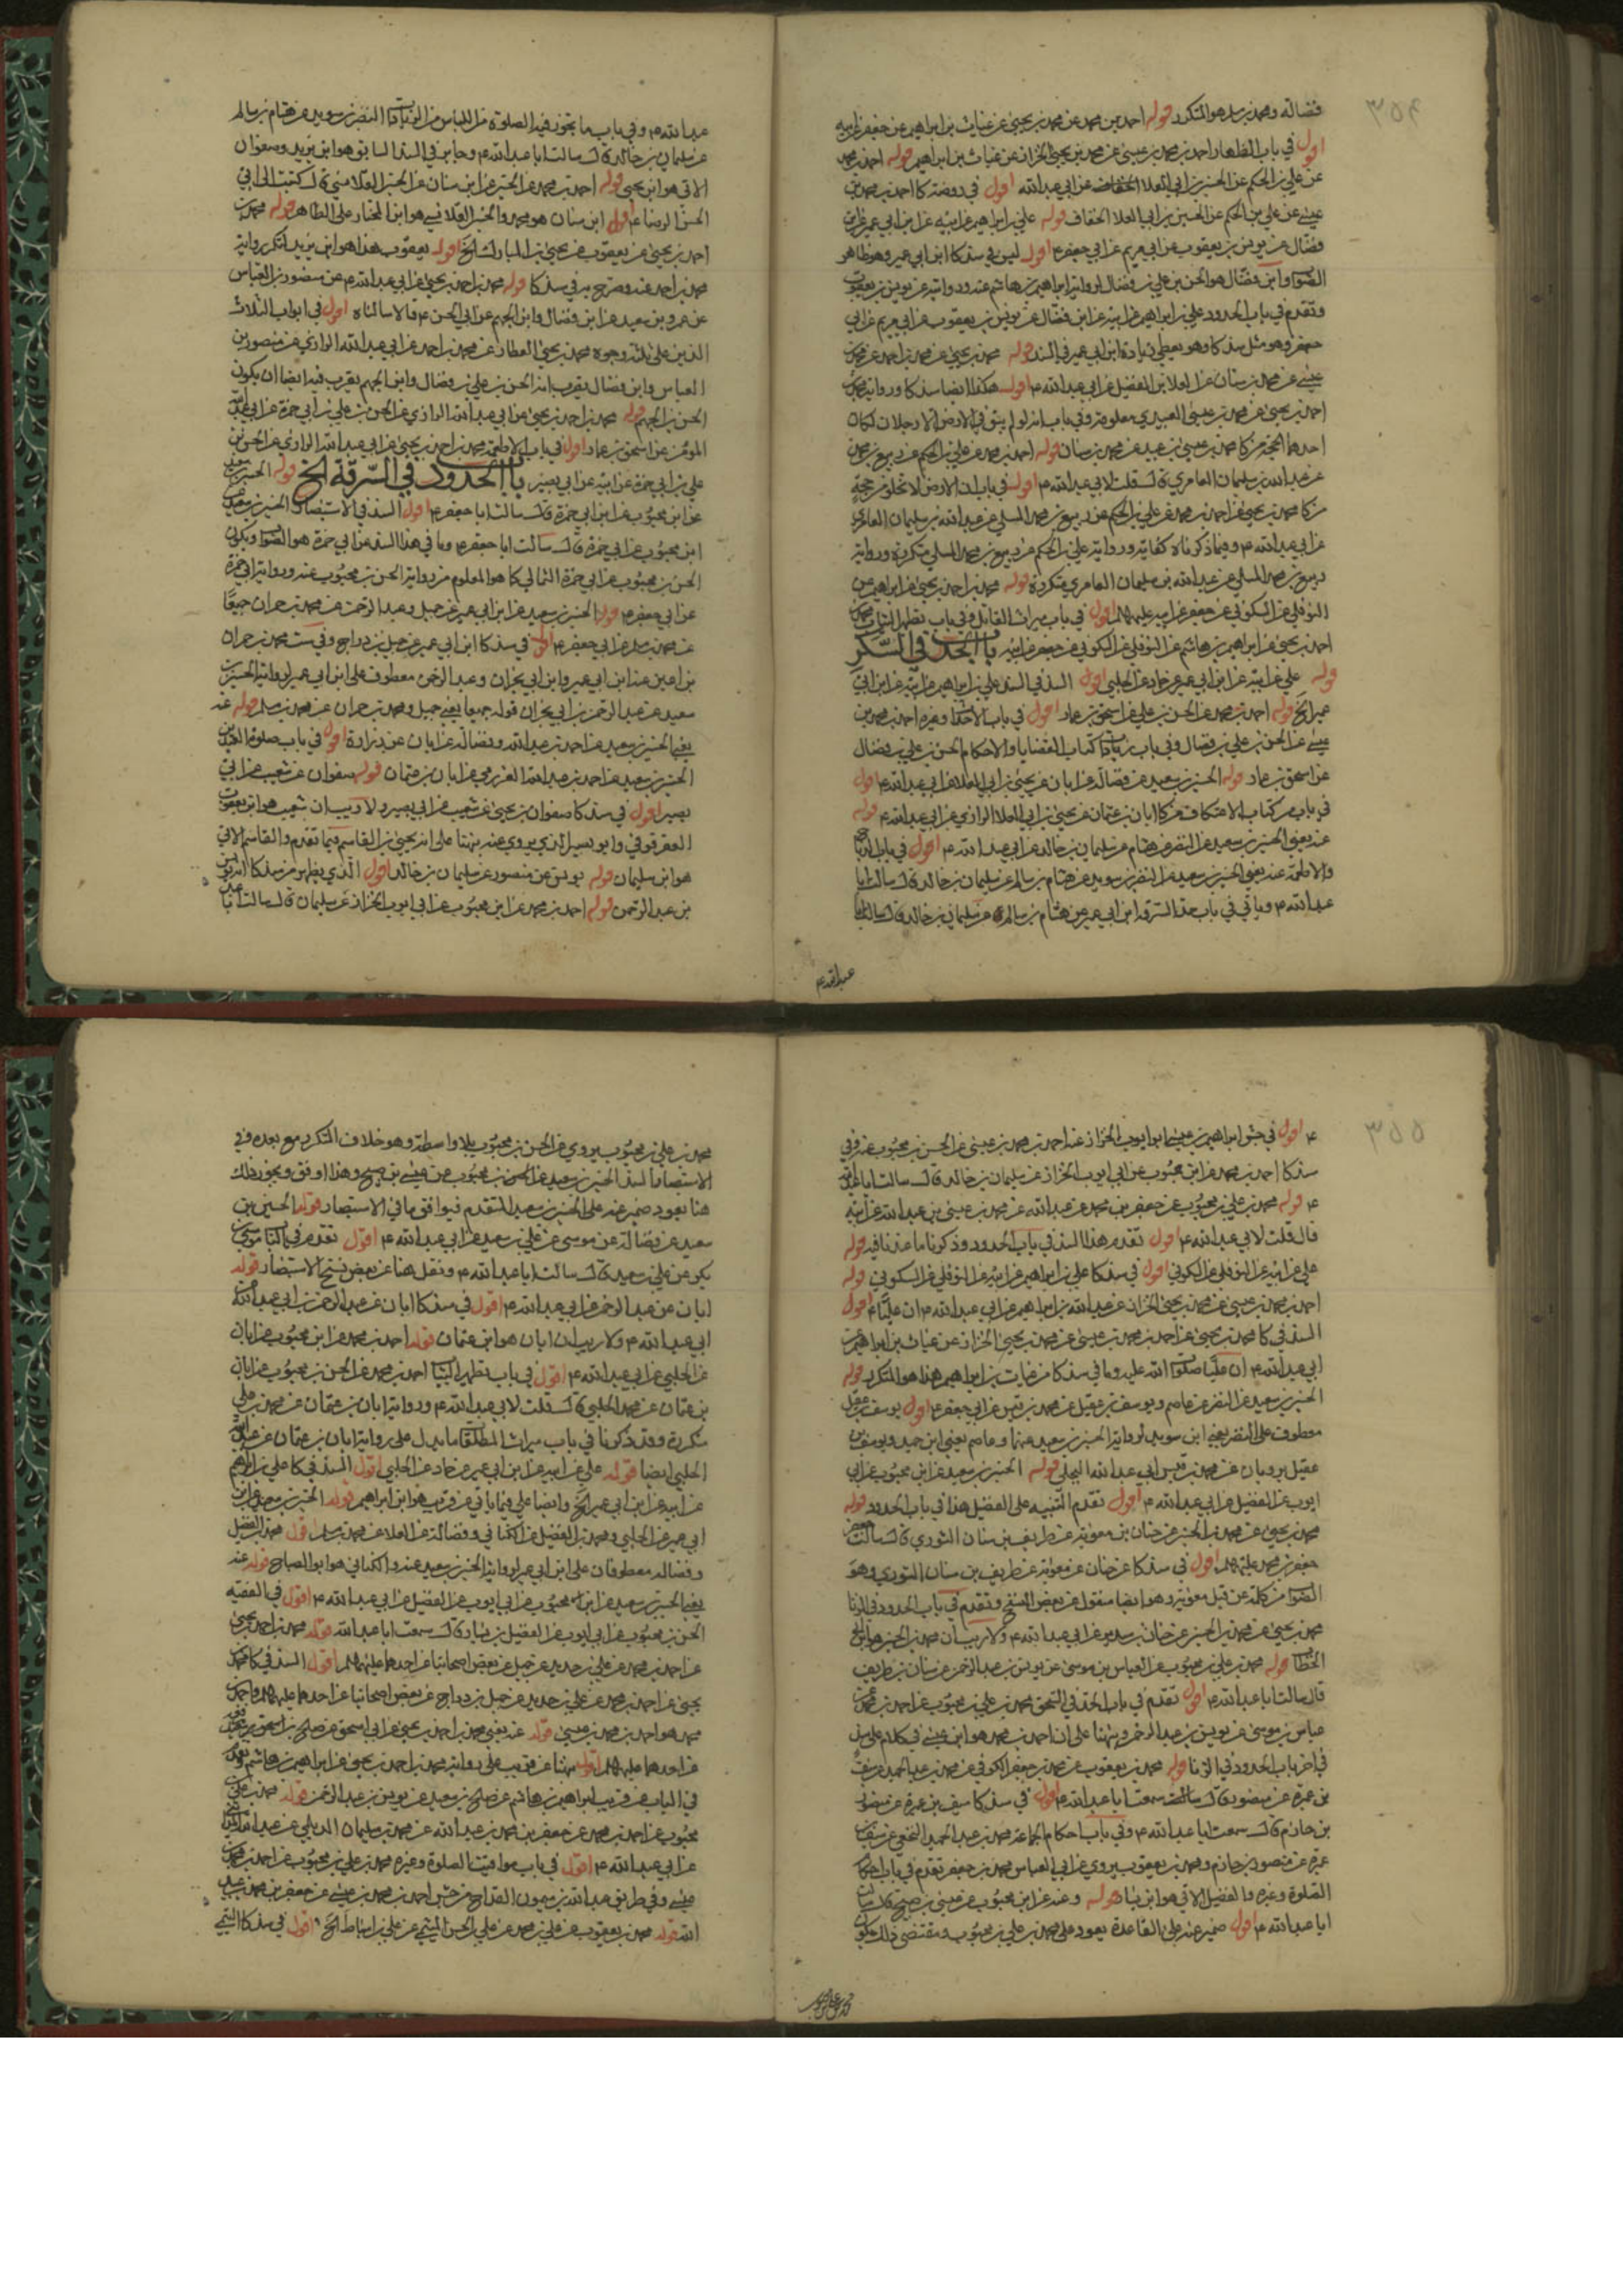 ٣٥٤
فضالة ومحمد بن مسلم هو المتكرر قوله احمد بن محمد عن محمد بن يحيى عن غياث بن ابراهيم عن جعفر عن ابيه
اقول في باب الظهار احمد بن محمد بن عيسى عن محمد بن يحيى الخزاز عن غياث بن ابراهيم قوله احمد بن محمد
عن علي بن الحكم عن الحسين بن ابي العلا الخفاف عن ابي عبد الله اقول في روضة كا احمد بن محمد بن
عيسى عن علي بن الحكم عن الحسين بن ابي العلا الخفاف قوله علي بن ابراهيم عن ابيه عن ابن ابي عمير عن ابن
فضال عن يونس بن يعقوب عن ابي مريم عن ابي جعفر ع اقول ليس في سند كا ابن ابي عمير وهو ظاهر
الصواب وابن فضال هو الحسن بن علي بن فضال لرواية ابراهيم بن هاشم عنه وروايته عن يونس بن يعقوب
وتقدم في باب الحدود علي بن ابراهيم عن ابيه عن ابن فضال عن يونس بن يعقوب عن ابي مريم عن ابي
جعفر وهو مثل سند كا وهو يعطي زيادة ابن ابي عمير في السند قوله محمد بن يحيى عن محمد بن احمد عن محمد بن
عيسى عن محمد بن سنان عن العلا بن الفضيل عن ابي عبد الله ع اقول هكذا ايضا سند كا ورواية محمد بن
احمد بن يحيى عن محمد بن عيسى العبيدي معلومة وفي باب انه لو لم يبق في الارض الا رجلان لكان
احدهما الحجة من كا محمد بن عيسى بن عبيد عن محمد بن سنان قوله احمد بن محمد عن علي بن الحكم عن ربيع بن محمد
عن عبد الله بن سليمان العامري قال قلت لابي عبد الله ع اقول في باب ان الارض لا تخلو من حجة
من كا محمد بن يحيى عن احمد بن محمد عن علي بن الحكم عن ربيع بن محمد المسلي عن عبد الله بن سليمان العامري
عن ابي عبد الله ع وفيما ذكرناه كفاية ورواية علي بن الحكم عن ربيع بن محمد المسلي متكررة ورواية
ربيع بن محمد المسلي عن عبد الله بن سليمان العامري متكررة قوله محمد بن احمد بن يحيى عن ابراهيم عن
النوفلي عن السكوني عن جعفر عن ابيه عليهما السلام اقول في باب ميراث القاتل وفي باب تطهير الثياب محمد بن
احمد بن يحيى عن ابراهيم بن هاشم عن النوفلي عن السكوني عن جعفر عن ابيه باب الحد في السكر
قوله علي عن ابيه عن ابن ابي عمير عن حماد عن الحلبي اقول السند في السند علي بن ابراهيم عن ابيه عن ابن ابي
عمير الخ قوله احمد بن محمد عن الحسن بن علي عن اسحق بن عمار اقول في باب الاحداث وغيره احمد بن محمد بن
عيسى عن الحسن بن علي بن فضال وفي باب زيادات كتاب القضايا والاحكام الحسن بن علي بن فضال
عن اسحق بن عمار قوله الحسين بن سعيد عن فضالة عن ابان عن يحيى بن ابي العلا عن ابي عبد الله ع اقول
في باب من كتاب الاعتكاف من كا ابان بن عثمان عن يحيى بن ابي العلا الرازي عن ابي عبد الله ع قوله
عنه يعني الحسين بن سعيد عن النضر عن هشام عن سليمان بن خالد عن ابي عبد الله ع اقول في باب الذبايح
والاطعمة عنه يعني الحسين بن سعيد عن النضر بن سويد عن هشام بن سالم عن سليمان بن خالد قال سالت ابا
عبد الله ع وياتي في باب حد السرقة ابن ابي عمير عن هشام بن سالم عن سليمان بن خالد قال سالت ابا
عبد الله ع
عبد الله ع وفي باب ما يجوز فيه الصلوة من اللباس من الزيادات النضر بن سويد عن هشام بن سالم
عن سليمان بن خالد قال سالت ابا عبد الله ع وحا بن في السند السابق هو ابن يزيد وصفوان
الاتي هو ابن يحيى قوله احمد بن محمد عن الحسين عن ابن سنان عن الحسين القلانسي قال كتبت الى ابي
الحسن الرضا ع اقول ابن سنان هو محمد والحسين القلانسي هو ابن المختار على الظاهر قوله محمد بن
احمد بن يحيى عن يعقوب عن يحيى بن المبارك الخ اقول يعقوب هذا هو ابن يزيد لتكرر رواية
محمد بن احمد عنه وصرح به في سند كا قوله محمد بن احمد بن يحيى عن ابي عبد الله ع عن منصور بن العباس
عن عمرو بن سعيد عن ابن فضال وابن الجهم عن ابي الحسن ع قالا سالناه اقول في ابواب الثلاث
الذين على ثلثة وجوه محمد بن يحيى العطار عن محمد بن احمد عن ابي عبد الله الرازي عن منصور بن
العباس وابن فضال يقرب انه الحسن بن علي بن فضال وابن الجهم يقرب فيه ايضا ان يكون
الحسن بن الجهم قوله محمد بن احمد بن يحيى عن ابي عبد الله الرازي عن الحسن بن علي بن ابي حمزة عن ابي عبد الله
المؤمن عن اسحق بن عمار اقول في باب الاطعمة محمد بن احمد بن يحيى عن ابي عبد الله الرازي عن الحسن بن
علي بن ابي حمزة عن ابيه عن ابي بصير باب الحدود في السرقة الخ قوله الحسين بن سعيد
عن ابن محبوب عن ابن ابي حمزة قال سالت ابا جعفر ع اقول السند في الاستبصار الحسين بن سعيد عن
ابن محبوب عن ابي حمزة قال سالت ابا جعفر ع وما في هذا السند عن ابي حمزة هو الصواب ويكون
الحسن بن محبوب عن ابي حمزة الثمالي كما هو المعلوم من رواية الحسن بن محبوب عنه ورواية ابي حمزة
عن ابي جعفر ع قوله الحسين بن سعيد عن ابن ابي عمير عن جميل وعبد الرحمن عن محمد بن حمران جميعا
عن محمد بن مسلم عن ابي جعفر ع اقول في سند كا ابن ابي عمير عن جميل بن دراج وفي ست محمد بن حمران
بن اعين عنه ابن ابي عمير وابن ابي نجران وعبد الرحمن معطوف على ابن ابي عمير لرواية الحسين بن
سعيد عن عبد الرحمن بن ابي نجران قوله جميعا يعني جميل ومحمد بن حمران عن محمد بن مسلم قوله عنه
يعني الحسين بن سعيد عن احمد بن عبد الله وفضالة عن ابان عن زرارة اقول في باب صلوة العيدين
الحسين بن سعيد عن احمد بن عبد الله القروي عن ابان بن عثمان قوله صفوان عن شعيب عن ابي
بصير اقول في سند كا صفوان بن يحيى عن شعيب عن ابي بصير ولا ريب ان شعيب هو ابن يعقوب
العقرقوفي وابو بصير الذي يروي عنه نبهنا على انه يحيى بن القاسم فيما تقدم والقاسم الاتي
هو ابن سليمان قوله يونس عن منصور عن سليمان بن خالد اقول الذي يظهر من سند كا انه يونس
بن عبد الرحمن قوله احمد بن محمد عن ابن محبوب عن ابي ايوب الخزاز عن سليمان قال سالت ابا عبد
٣٥٥
ع اقول في ست ابراهيم بن عيسى ابو ايوب الخزاز عنه احمد بن محمد بن عيسى عن الحسن بن محبوب عنه وفي
سند كا احمد بن محمد عن ابن محبوب عن ابي ايوب الخزاز عن سليمان بن خالد قال سالت ابا عبد الله
ع قوله محمد بن علي بن محبوب عن جعفر بن محمد عن عبد الله عن محمد بن عيسى بن عبد الله عن ابيه
قال قلت لابي عبد الله ع اقول تقدم هذا السند في باب الحدود وذكرنا ما عندنا فيه قوله
علي عن ابيه عن النوفلي عن السكوني اقول في سند كا علي بن ابراهيم عن ابيه عن النوفلي عن السكوني قوله
احمد بن محمد بن عيسى عن محمد بن يحيى الخزاز عن عبد الله بن ابراهيم عن ابي عبد الله ع ان عليا ع اقول
السند في كا محمد بن يحيى عن احمد بن محمد بن عيسى عن محمد بن يحيى الخزاز عن غياث بن ابراهيم عن
ابي عبد الله ع ان عليا صلوات الله عليه وما في سند كا من غياث بن ابراهيم هذا هو المتكرر قوله
الحسين بن سعيد عن النضر عن عاصم ويوسف بن عقيل عن محمد بن قيس عن ابي جعفر ع اقول يوسف بن عقيل
معطوف على النضر يعني ابن سويد لرواية الحسين بن سعيد عنهما وعاصم يعني ابن حميد ويوسف بن
عقيل يرويان عن محمد بن قيس ابي عبد الله البجلي قوله الحسين بن سعيد عن ابن محبوب عن ابي
ايوب عن الفضيل عن ابي عبد الله ع اقول تقدم التنبيه على الفضيل هذا في باب الحدود قوله
محمد بن يحيى عن محمد بن الحسين عن حنان بن معوية عن طريف بن سنان الثوري قال سالت
جعفر بن محمد عليهما السلام اقول في سند كا عن حنان عن معوية عن طريف بن سنان الثوري وهو
الصواب من كلمة عن قبل معوية وهو ايضا منقول عن بعض النسخ وتقدم في باب الحدود في الزنا
محمد بن يحيى عن محمد بن الحسين عن حنان بن سدير عن ابي عبد الله ع ولا ريب ان محمد بن الحسين هو ابن ابي
الخطاب قوله محمد بن علي بن محبوب عن العباس بن موسى عن يونس بن عبد الرحمن عن سنان بن طريف
قال سالت ابا عبد الله ع اقول تقدم في باب الحد في السحق محمد بن علي بن محبوب عن احمد بن محمد عن
عباس بن موسى عن يونس بن عبد الرحمن ونبهنا على ان احمد بن محمد هو ابن عيسى في كلام على سند
في اخر باب الحدود في الزنا قوله محمد بن يعقوب عن محمد بن جعفر الكوفي عن محمد بن عبد الحميد عن سيف
بن عميرة عن منصور قال سمعت ابا عبد الله ع اقول في سند كا سيف بن عميرة عن منصور
بن حازم قال سمعت ابا عبد الله ع وفي باب احكام الجماعة محمد بن عبد الحميد النخعي عن سيف بن
عميرة عن منصور بن حازم ومحمد بن يعقوب يروي عن ابي العباس محمد بن جعفر تقدم في باب احكام
الصلوة وغيره والفضيل الاتي هو ابن يسار قوله وعنه عن ابن محبوب عن عيسى بن صبيح قال سالت
ابا عبد الله ع اقول ضمير عنه على القاعدة يعود على محمد بن علي بن محبوب ومقتضى ذلك يكون
محمد بن علي بن محبوب
محمد بن علي بن محبوب يروي عن الحسن بن محبوب بلا واسطة وهو خلاف المتكرر مع بعده وفي
الاستبصار السند الحسين بن سعيد عن الحسن بن محبوب عن عيسى بن صبيح وهذا اوفق ويجوز ذلك
هنا بعود ضمير عنه على الحسين بن سعيد المتقدم فيوافق ما في الاستبصار قوله الحسين بن
سعيد عن فضالة عن موسى عن علي بن سعيد عن ابي عبد الله ع اقول تقدم في
بكر عن علي بن سعيد قال سالت ابا عبد الله ع ونقل هنا عن بعض نسخ الاستبصار قوله
ابان عن عبد الرحمن عن ابي عبد الله ع اقول في سند كا ابان عن عبد الرحمن بن ابي عبد الله عن
ابي عبد الله ع ولا ريب ان ابان هو ابن عثمان قوله احمد بن محمد عن ابن محبوب عن ابان
عن الحلبي عن ابي عبد الله ع اقول في باب تطهير الثياب احمد بن محمد عن الحسن بن محبوب عن ابان
بن عثمان عن محمد الحلبي قال قلت لابي عبد الله ع ورواية ابان بن عثمان عن محمد بن علي
متكررة وقد ذكرنا في باب ميراث المطلقات ما يدل على رواية ابان بن عثمان عن عبيد الله
الحلبي ايضا قوله علي عن ابيه عن ابن ابي عمير عن حماد عن الحلبي اقول السند في كا علي بن ابراهيم
عن ابيه عن ابن ابي عمير الخ وايضا علي فيما ياتي عن قريب هو ابن ابراهيم قوله الحسين بن سعيد عن ابن
ابي عمير عن الحلبي ومحمد بن الفضيل عن الكناني وفضالة عن العلا عن محمد بن مسلم اقول محمد بن الفضيل
وفضالة معطوفان على ابن ابي عمير لرواية الحسين بن سعيد عنه والكناني هو ابو الصباح قوله عنه
يعني الحسين بن سعيد عن ابن محبوب عن ابي ايوب عن الفضيل عن ابي عبد الله ع اقول في الفقيه
الحسن بن محبوب عن ابي ايوب عن الفضيل بن يسار قال سمعت ابا عبد الله قوله محمد بن احمد بن يحيى
عن احمد بن محمد عن علي بن حديد عن جميل عن بعض اصحابنا عن احدهما عليهما السلام اقول السند في كا محمد بن
يحيى عن احمد بن محمد عن علي بن حديد عن جميل بن دراج عن بعض اصحابنا عن احدهما عليهما السلام واحمد بن
محمد هو احمد بن محمد بن عيسى قوله عنه يعني محمد بن احمد بن يحيى عن ابي اسحق عن صالح بن
عن احدهما عليهما السلام اقول نبهنا عن قريب على رواية محمد بن احمد بن يحيى عن ابراهيم بن هاشم وتقدم
في الباب عن قريب ابراهيم بن هاشم عن صالح بن سعيد عن يونس بن عبد الرحمن قوله محمد بن علي بن
محبوب عن احمد بن محمد عن جعفر بن محمد بن عبد الله عن محمد بن سليمان الديلمي عن
عن ابي عبد الله ع اقول في باب مواقيت الصلوة وغيره محمد بن علي بن محبوب عن احمد بن محمد بن
عيسى وفي طريق عبد الله بن ميمون القداح من ست احمد بن محمد بن عيسى عن جعفر بن محمد بن عبيد
الله قوله محمد بن يعقوب عن علي بن محمد عن علي بن الحسن الميثمي عن علي بن اسباط الخ اقول في سند كا التيمي